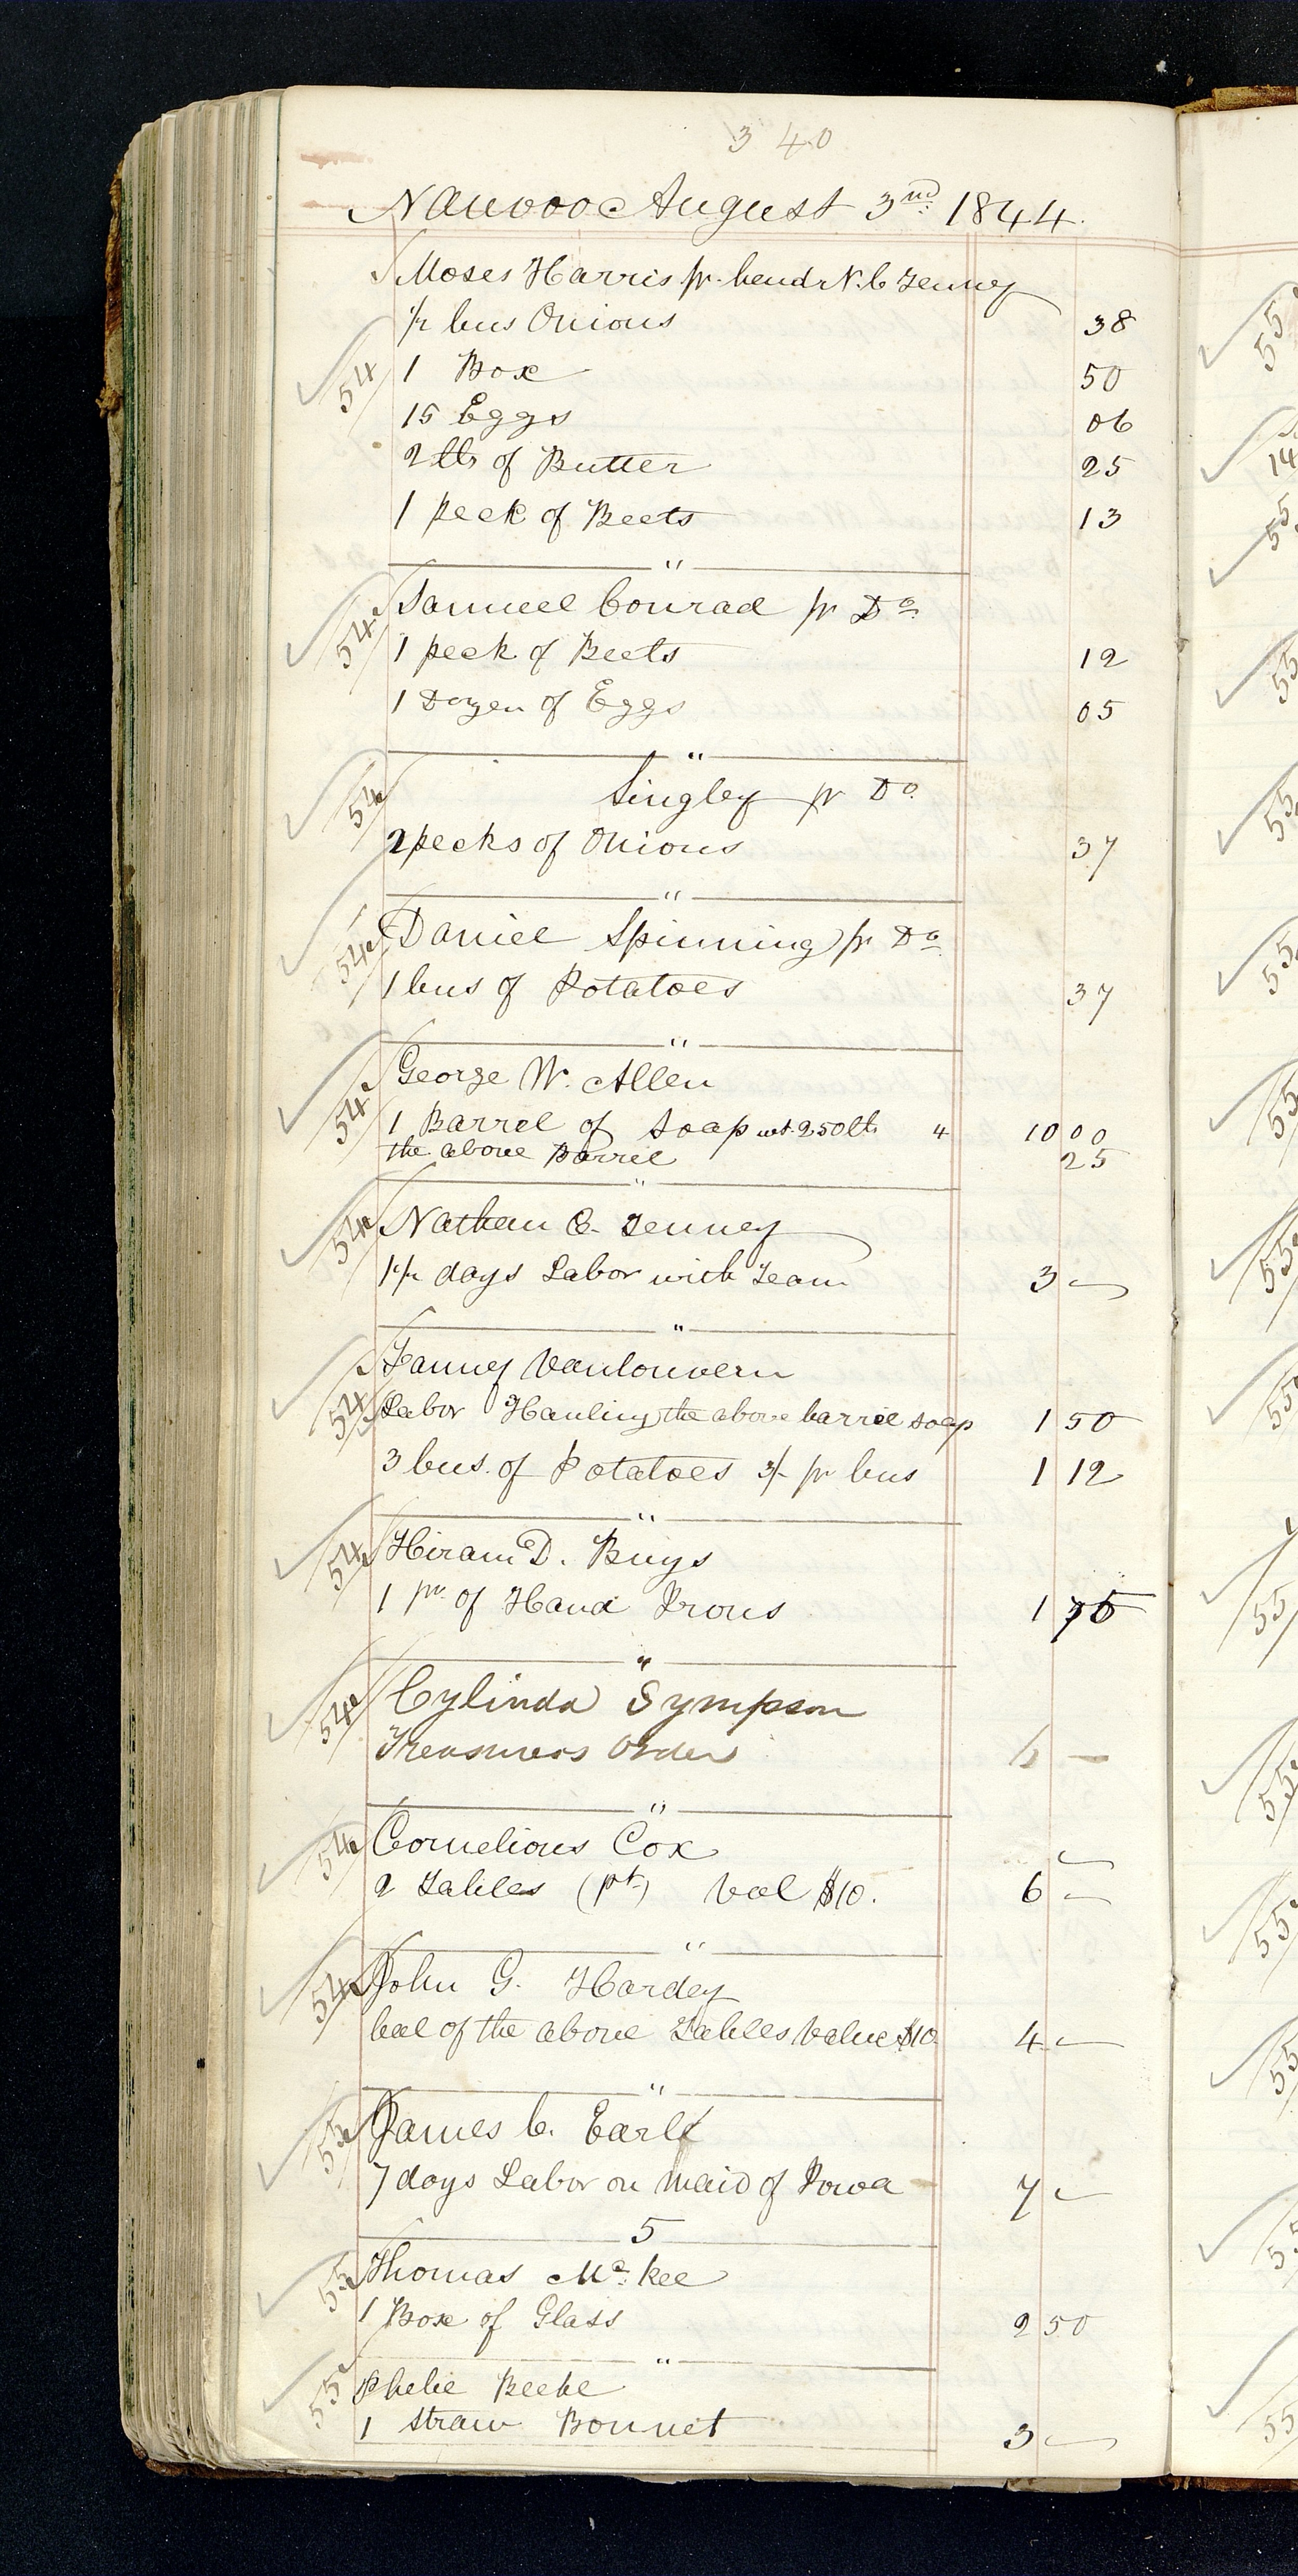 340
Nauvoo August 3nd 1844.
Moses Harris pr. hend N. C Tenney
1/2 bus Onions 38
54 1 Box 50
15 Eggs 06
2 lb of Butter 25
1 peck of Beets 13
"
54 Samuel Conrad pr Do
1 peck of Beets 12
1 Dozen of Eggs 05
"
54 Singley pr Do.
2 pecks of Onions 37
"
54 Daniel Spinning pr Do
1 bus of Potatoes 37
"
George W. Allen
54 1 Barrel of Soap wt. 250 lb 4 10 00
the above Barrel 25
"
54 Nathan C. Tenney
1 1/2 days Labor with Team 3 —
"
Fanney
54 Labor Hauling the above barrel soap 1 50
3 bus. of Potatoes 3/- pr bus 1 12
"
54 Hiram D. Buys
1 pr. of Hand Irons 1 75
"
54 Cylinda Sympson
Treasurers Order —
"
54 Cornelious Cox
2 Tables (pt) Val $10. 6 —
"
54 John G. Hardey
bal of the above Tables Value $10 4 —
"
55 James C. Earl
7 days Labor on Maid of Iowa 7 —
5
55 Thomas Mc. Kee
1 Box of Glass 2 50
"
55 Phebe Beebe
1 Straw Bonnet 3 —
55
14
55
55
55
55
55
55
55
55
55
55
55
55
55